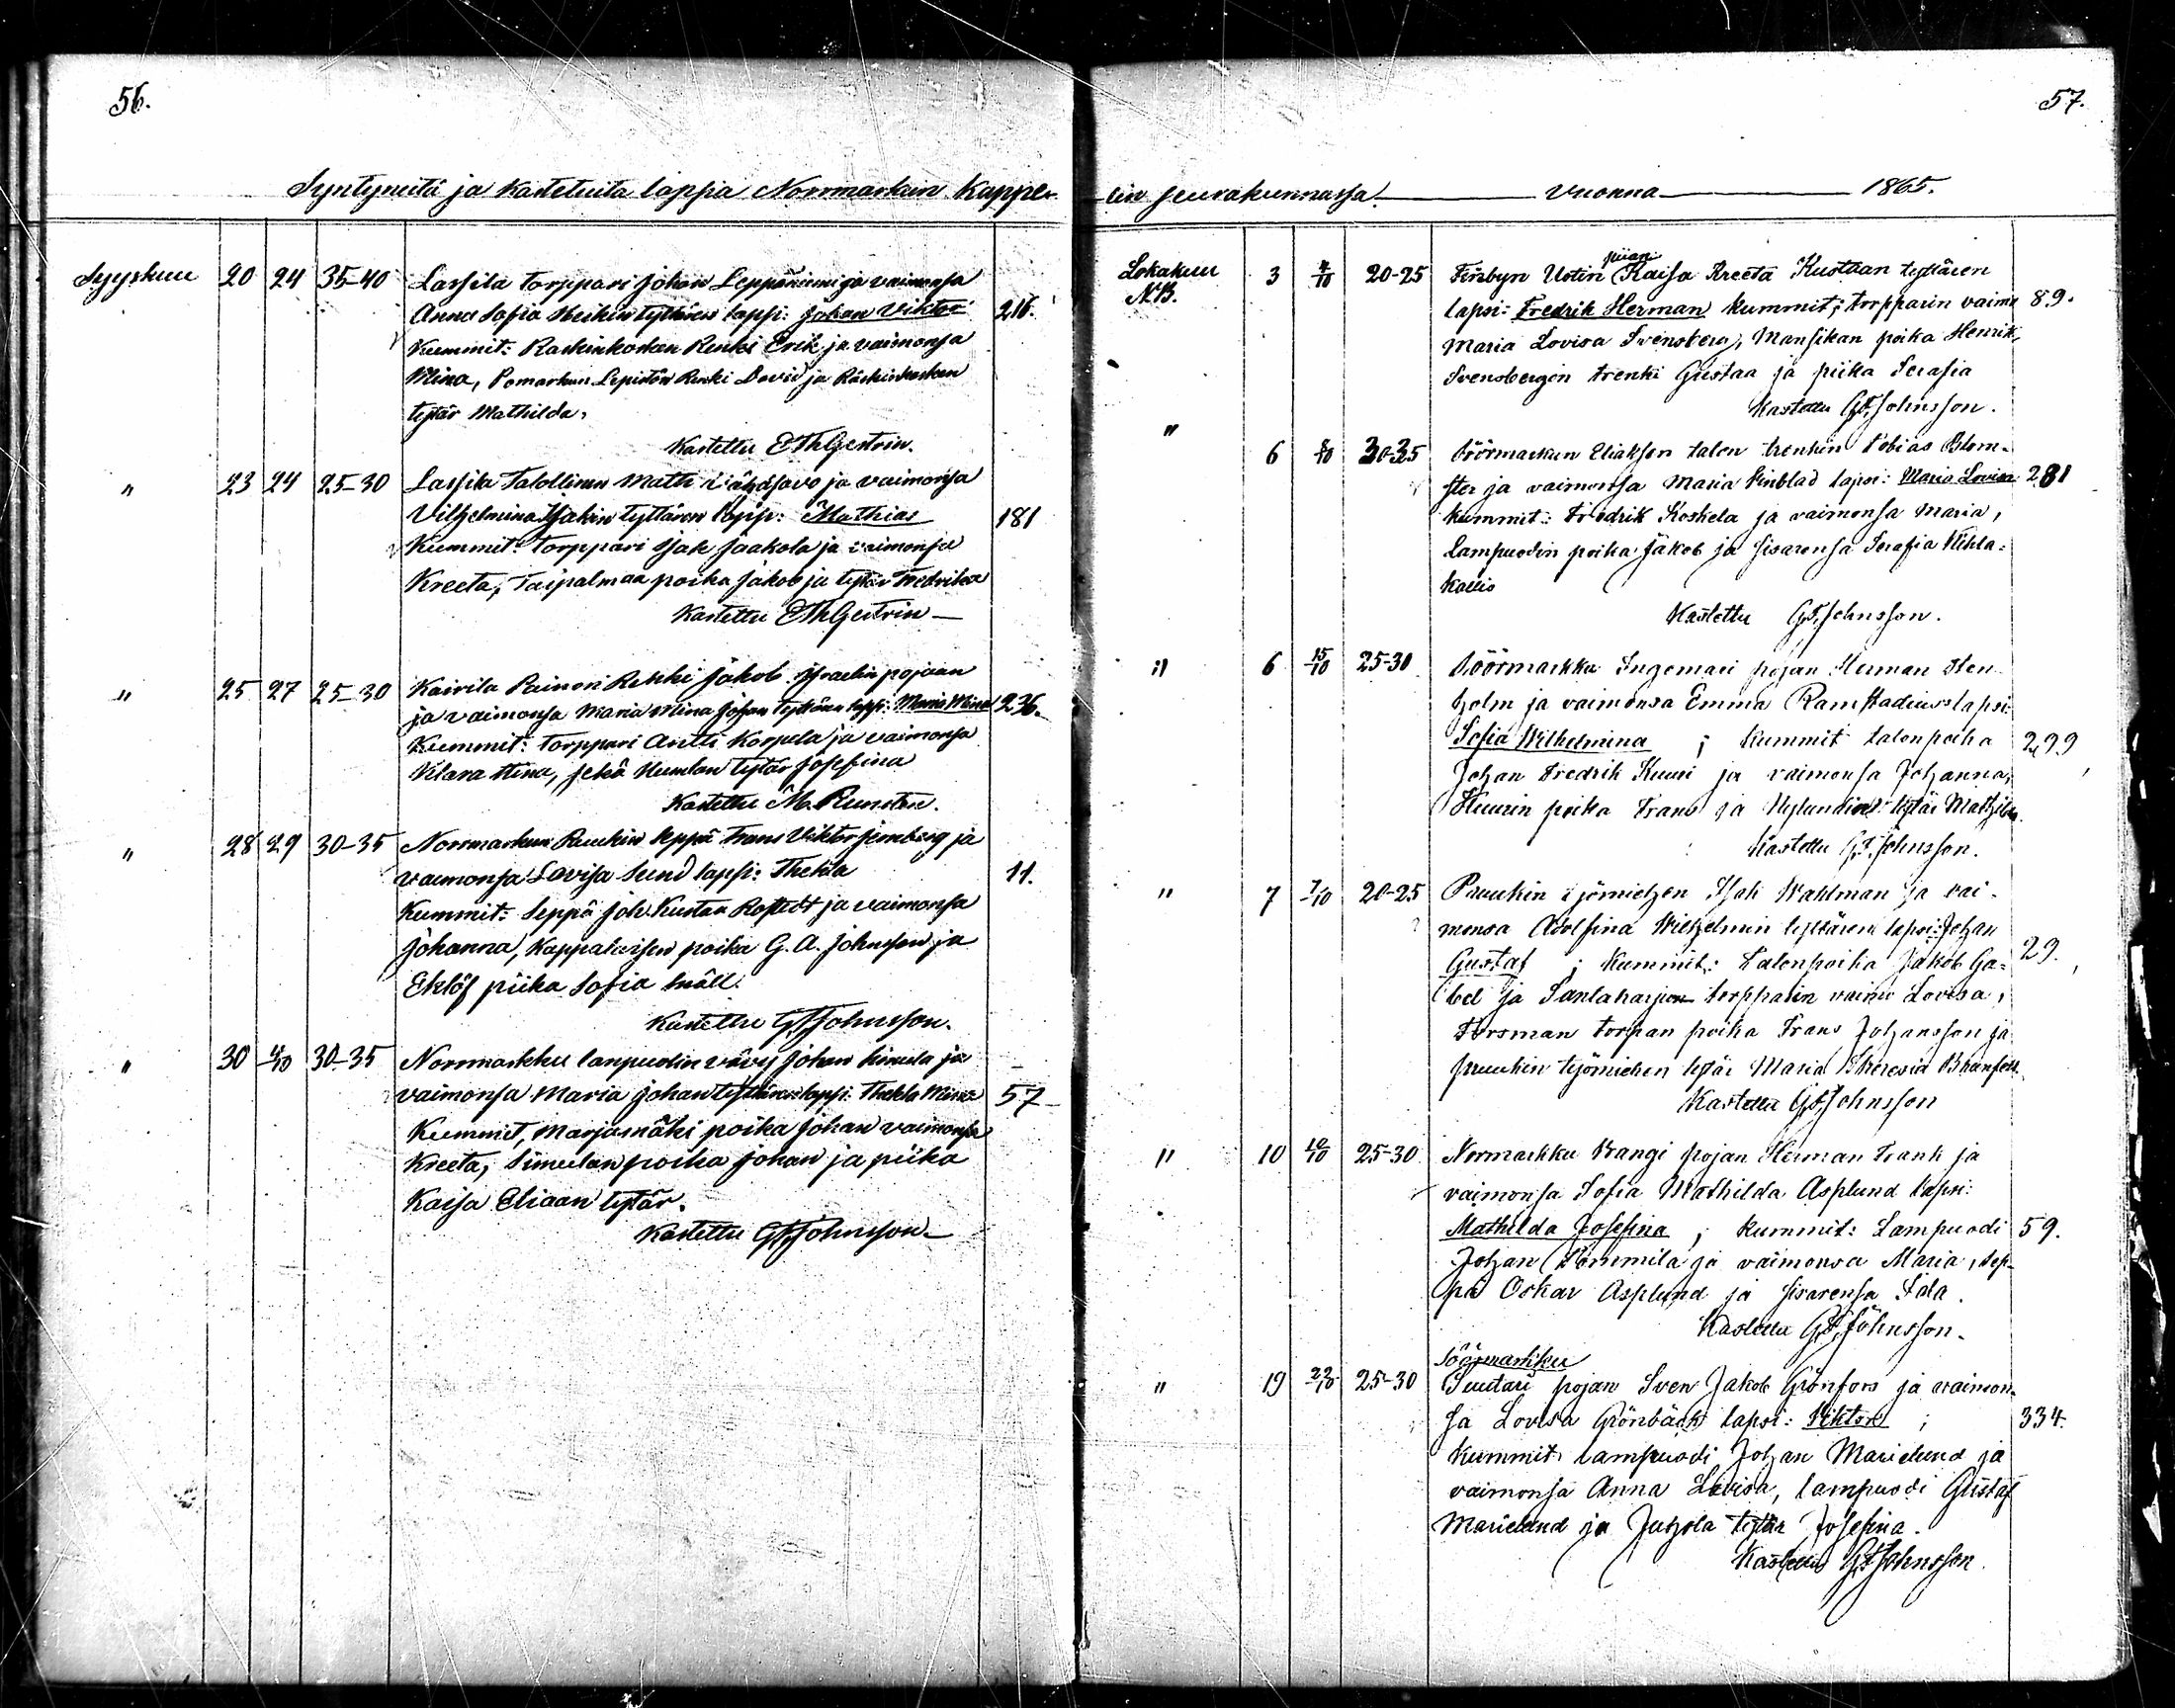 56.
Syntyneitä ja kastetuita lapsia Norrmarkun Kappe-
Syyskuu 20 24 35-40 Lassila torppari Johan Leppäniemi ja vaimonsa
Anna Sofia Heikin tyttären lapsi: Johan Viktor 216.
Kummit: Raskinkosken Renki Erik ja vaimonsa
Mina, Pomarkun Lepistön Renki David ja Räskinkosken
tytär Mathilda,
Kastettu E Th Gestrin.
" 23 24 25-30 Lassila Talollinen Matti ja vaimonsa
Vilhelmina Isakin tyttären laps: Mathias 181
Kummit: Torppari Isak Jaakola ja vaimonsa
Kreeta, Taipalmaa poika Jakob ja tytär Fredrika
Kastettu E Th Gestrin
" 25 27 25-30 Kairila Painori Renki Jakob Israelin pojaan
ja vaimonsa Maria Mina Johan tyttären laps: Maria Mina 236.
Kummit: Torppari Antti Korpela ja vaimonsa
Klara Stina, sekä Numlan tytär Josefina
Kastettu M. Runsten.
" 28 29 30-35 Norrmarkun Ruukin Seppä Frans Viktor Jernberg ja
vaimonsa Lovisa Sund lapsi: Thekla 11.
Kummit: Seppä Joh. Kustaa Rostedt ja vaimonsa
Johanna, Kappalaisen poika G. A. Johnsson ja
Eklöf piika Sofia Snäll.
Kastettu G F Johnsson.
" 30 4/10 30-35 Norrmarkku lanpuodin vävy Johan Simula ja
vaimonsa Maria Johan tyttären laps: Thekla Mina 57
Kummit, Marjamäki poika Johan vaimonsa
Kreeta, Simulan poika Johan ja piika
Kaisa Eliaan tytär.
Kastettu G F Johnsson
57.
lin seurakunnassa vuonna 1865.
Lokakuu 3 4/10 20-25 Finbyn Ustin piian Kaisa Kreeta Kustaan tyttären
N.B. lapsi: Fredrik Herman kummit; torpparin vaimo 89.
Maria Lovisa Svensberg, Mansikan poika Henrik,
Svensbergin trenki Gustaa ja piika Serafia
Kastettu G F Johnsson.
" 6 8/10 30-35 Söörmarkun Eliaksen talon trenkin Tobias Blom-
ster ja vaimonsa Maria Sinblad lapsi: Maria Lovisa 281
kummit: Fredrik Koskela ja vaimonsa Maria,
Lampuodin poika Jakob ja sisarensa Serafia Uhla-
kallio
Kastettu G F Johnsson.
" 6 15/10 25-30 Söörmarkku Ingemari pojan Herman Sten-
holm ja vaimonsa Emma Ramstadius lapsi:
Sofia Wilhelmina ; kummit talonpoika 299
Johan Fredrik Kuuri ja vaimonsa Johanna,
Kuurin poika Frans ja Nylundin tytär Mathilda.
Kastettu G F Johnsson.
" 7 7/10 20-25 Pruukin työmiehen Isak Wahlman ja vai-
monsa Adolfina Wilhelmin tyttären lapsi: Johan
Gustaf ; kummit: Talonpoika Jakob Ga- 29.
bel ja Santaharjun torpparin vaimo Lovisa,
Forsman torpan poika Frans Johansson ja
pruukin työmiehen tytär Maria Theresia Branfors
Kastettu G F Johnsson
" 10 10/10 25-30 Normarkku Krangi pojan Herman Frank ja
vaimonsa Sofia Mathilda Asplund lapsi:
Mathilda Josefina ; kummit: Lampuodi 59.
Johan Sömmila ja vaimonsa Maria, sep-
pä Oskar Asplund ja sisarensa Ida.
Kastettu G F Johnsson.
Söörmarkku
" 19 22/10 25-30 Suutari pojan Sven Jakob Grönfors ja vaimon-
sa Lovisa Grönbäck lapsi: Viktor ; 334.
Kummit lampuodi Johan Marielund ja
vaimonsa Anna Lovisa, lampuodi Gustaf
Marielund ja Juhola tytär Josefina.
Kastettu G F Johnsson.